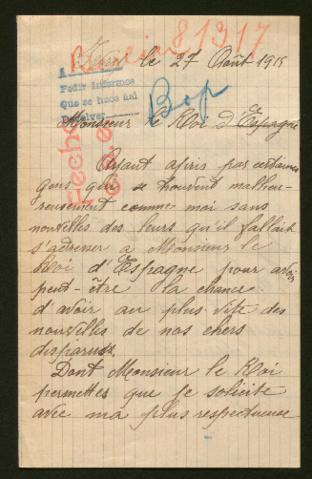 81317
le 27 Août 1915
Pedir informes
Que se hace así
Bop
Monsieur le Roi d'Espagne
Ayant apris par certaines
gens qui se trouvent malheu-
reusement comme moi sans
nouvelles des leurs qu'il fallait
s'adresser à Monsieur le
Roi d'Espagne pour avoir
peut-être la chance
d'avoir au plus vite des
nouvelles de nos chers
disparuss.
Dont Monsieur le Roi
permettes que je solicite
avec ma plus respectueuse